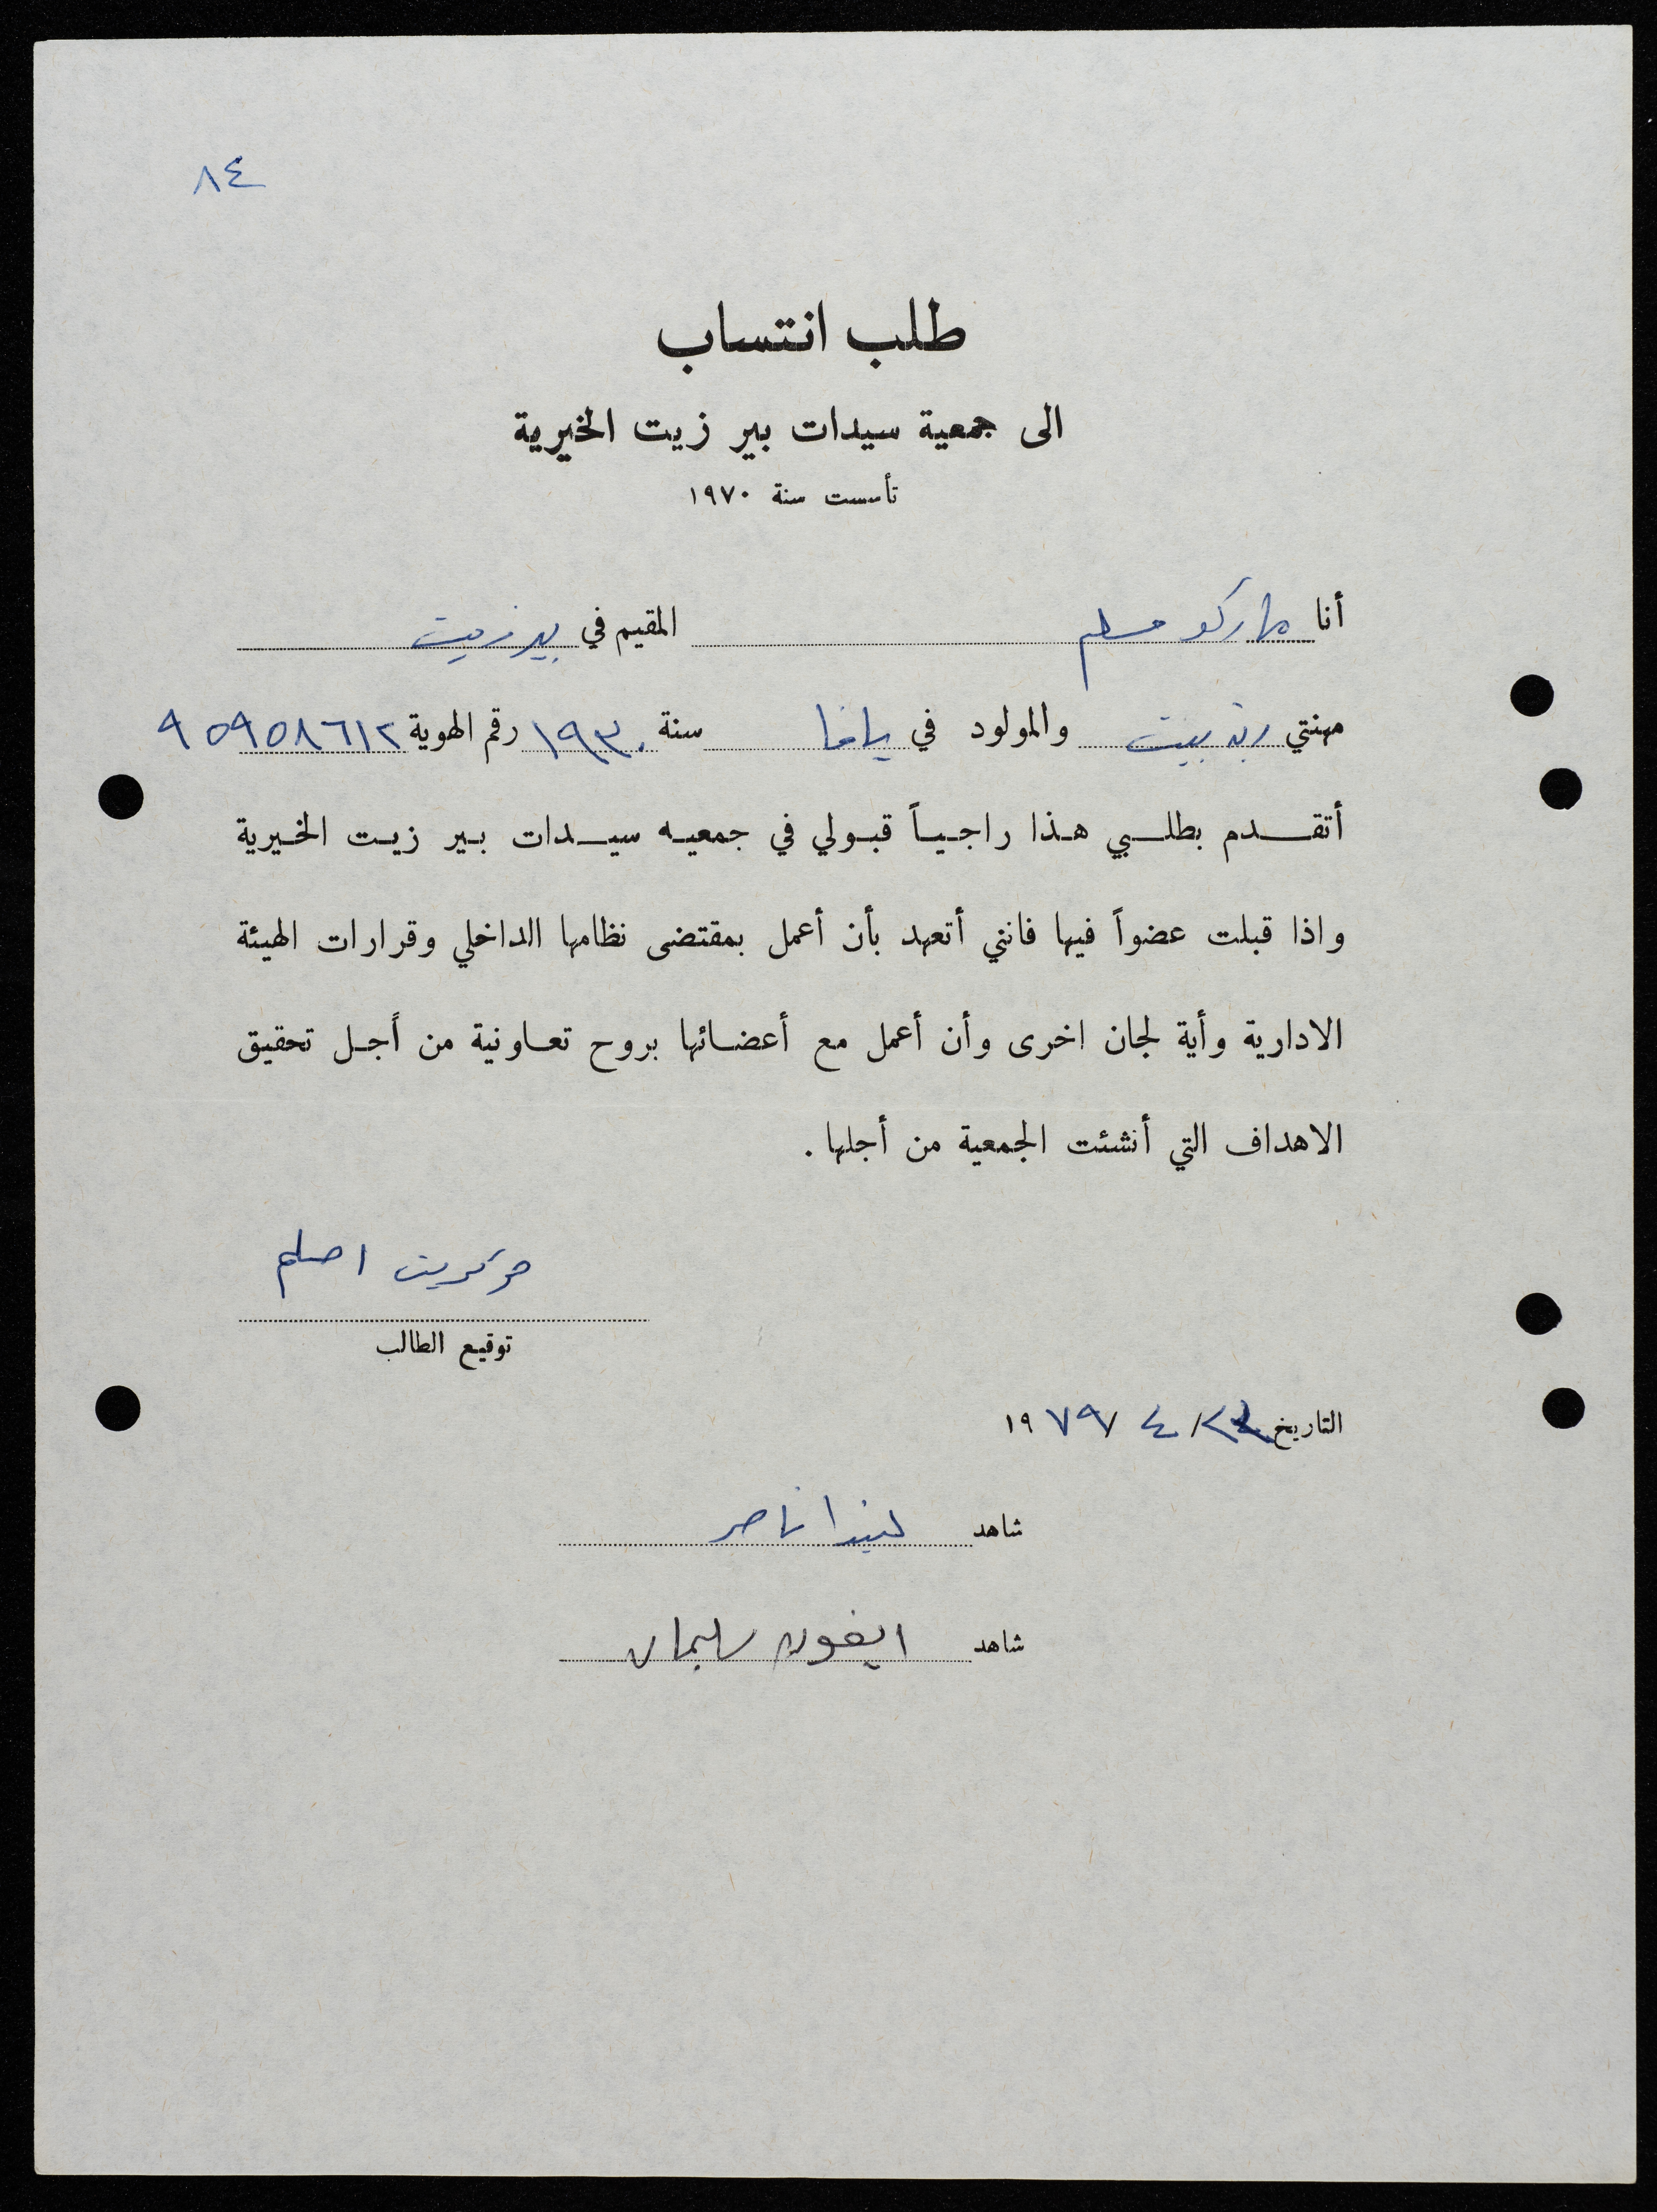 ٨٤
طلب انتساب
الى جمعية سيدات بير زيت الخيرية
تأسست سنة ١٩٧٠
أنا ماركو مسلم المقيم في بيرزيت
مهنتي ربة بيت والمولود في يافا سنة ١٩٣٠ رقم الهوية ٩٥٩٥٨٦١٢
أتقدم بطلبي هذا راجياً قبولي في جمعيه سيدات بير زيت الخيرية
واذا قبلت عضواً فيها فانني أتعهد بأن أعمل بمقتضى نظامها الداخلي وقرارات الهيئة
الادارية وأية لجان اخرى وأن أعمل مع أعضائها بروح تعاونية من أجل تحقيق
الاهداف التي أنشئت الجمعية من أجلها .
توقيع الطالب
التاريخ / ٤ / ١٩٧٩
شاهد ليندا ناصر
شاهد ايفون سليمان